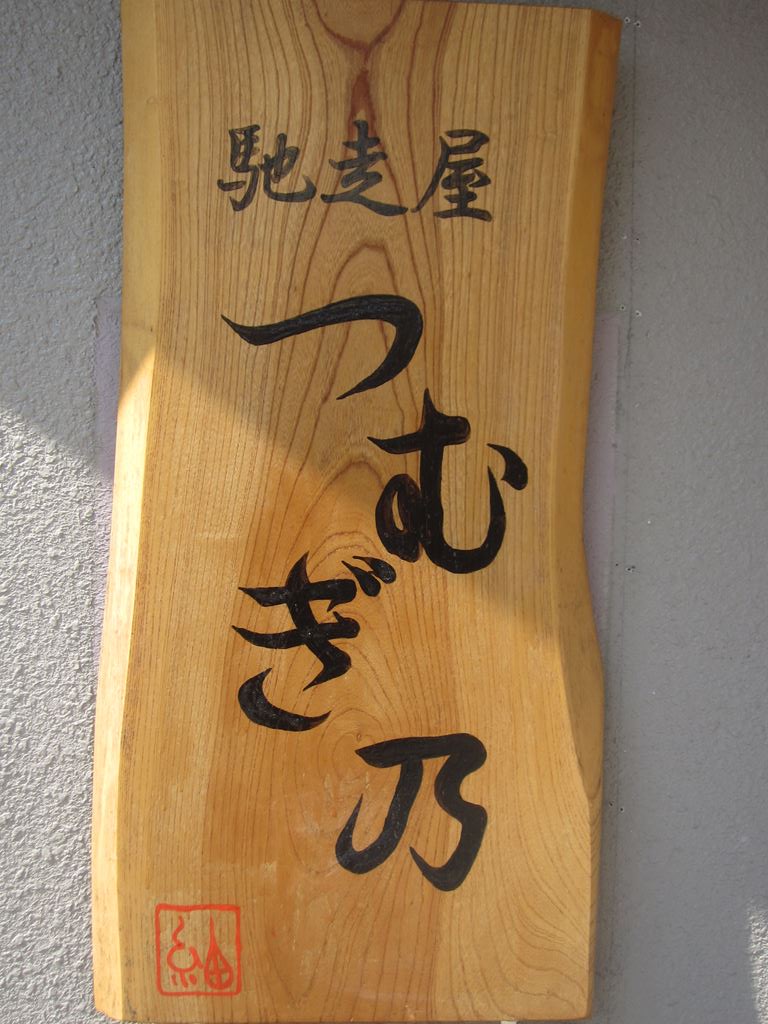 馳走屋
つむぎ乃
紬